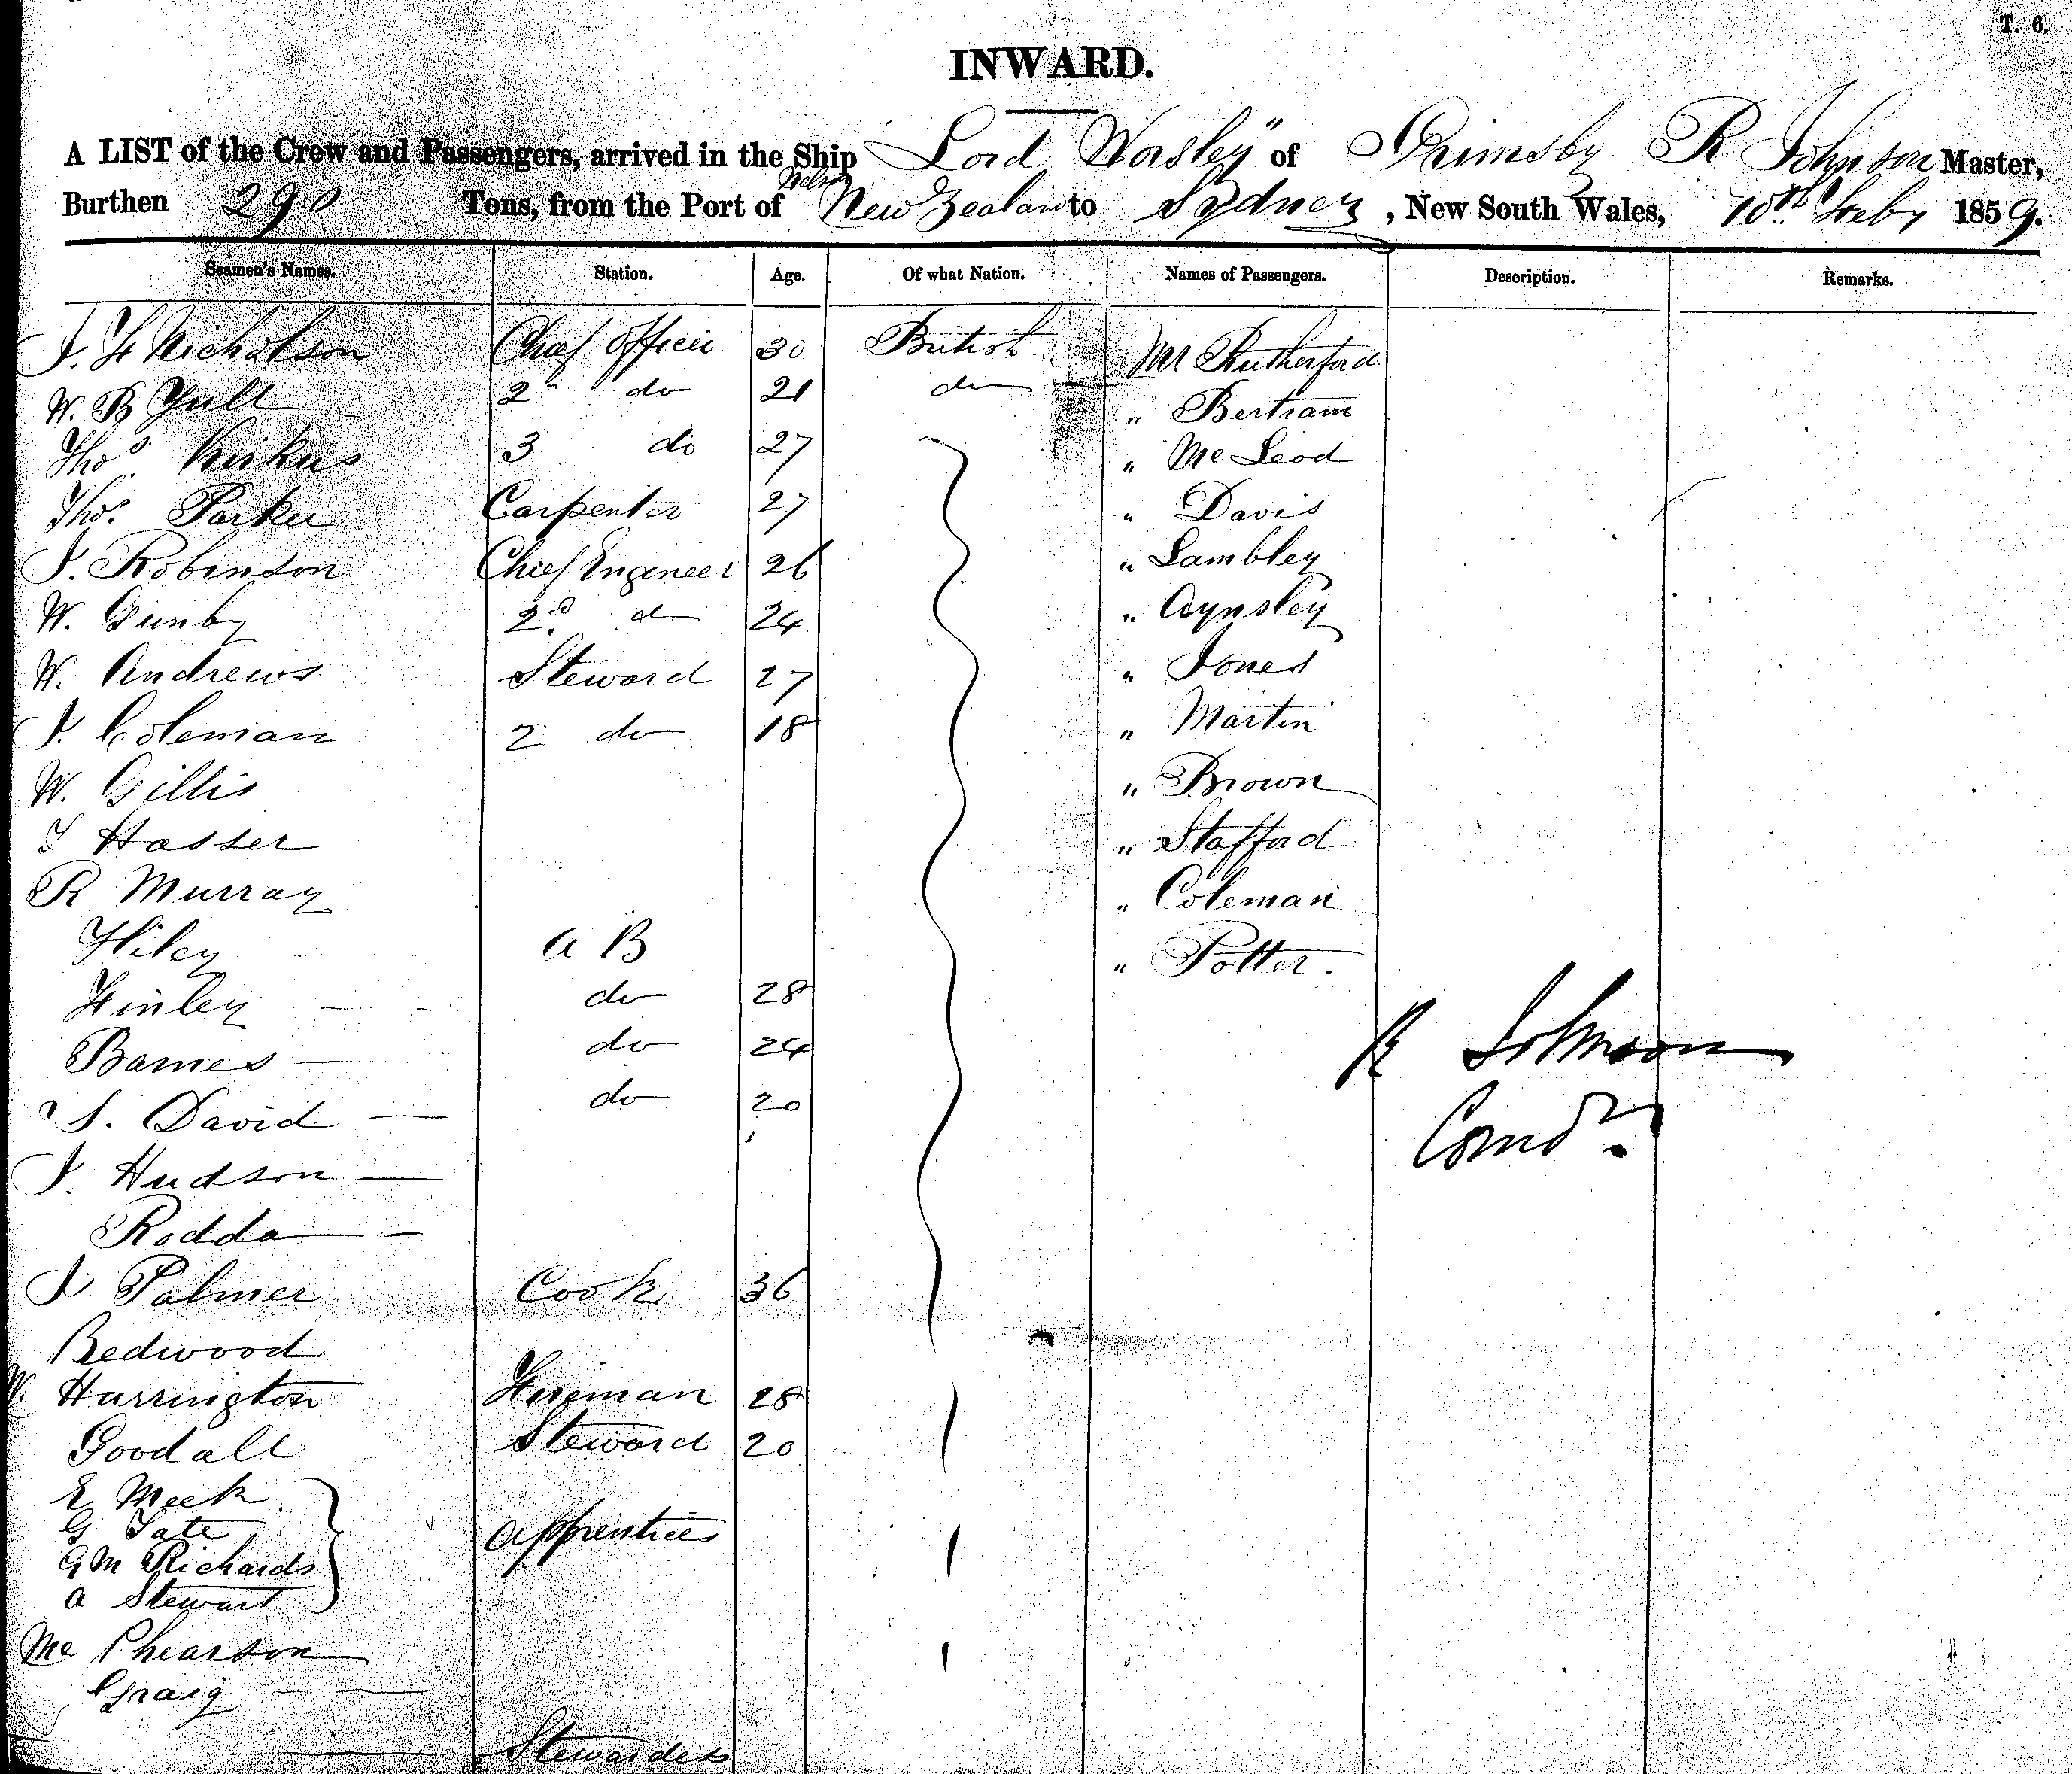 T. 6.
INWARD.
A LIST of the Crew and Passengers, arrived in the Ship Lord Worsley" of Grimsby R Johnson Master,
Burthen 290 Tons, from the Port of Nelson New Zealand to Sydney, New South Wales, 10th Feby 1859.
Seamen's Names. Station. Age. Of what Nation. Names of Passengers. Description. Remarks.
J. F Nicholson Chief Officer 30 British Mr Rutherford
W. B Yull 2nd do 21 do " Bertram
Thos. Kirkus 3 do 27 " Mc Leod
Thos. Parker Carpenter 27 " Davis
J. Robinson Chief Engineer 26 " Lambley
W. Gunby 2nd do 24 " Aynsley
W. Andrews Steward 27 " Jones
J. Coleman 2 do 18 " Martin
W. Gillis " Brown
J Hasser " Stafford
R Murray " Coleman
Hiley A B " Potter.
Finley do 28
Barnes do 24
S. David do 20
J. Hudson
Rodda
J Palmer Cook 36
Bedwood
W. Harrington Fireman 28
Goodall Steward 20
E Meek
G Tate
G M Richards
A Stewart
Apprentices
Mc Phearson
Graig
Stewardess
R Johnson
Comdr.